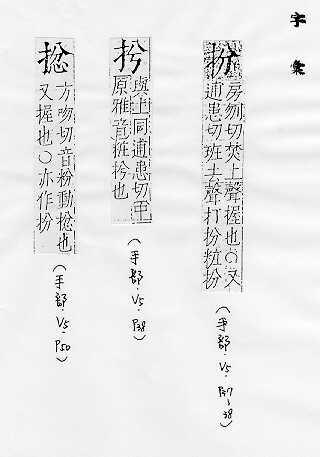 字彙
扮
房吻切焚上聲握也〇又
逋患切班去聲打扮粧扮
(手部.V5.P37~38)
與上同逋患切
原雅音班也
(手部.V5.P38)
方吻切音粉動也
又握也〇亦作扮
(手部.V5.P50)